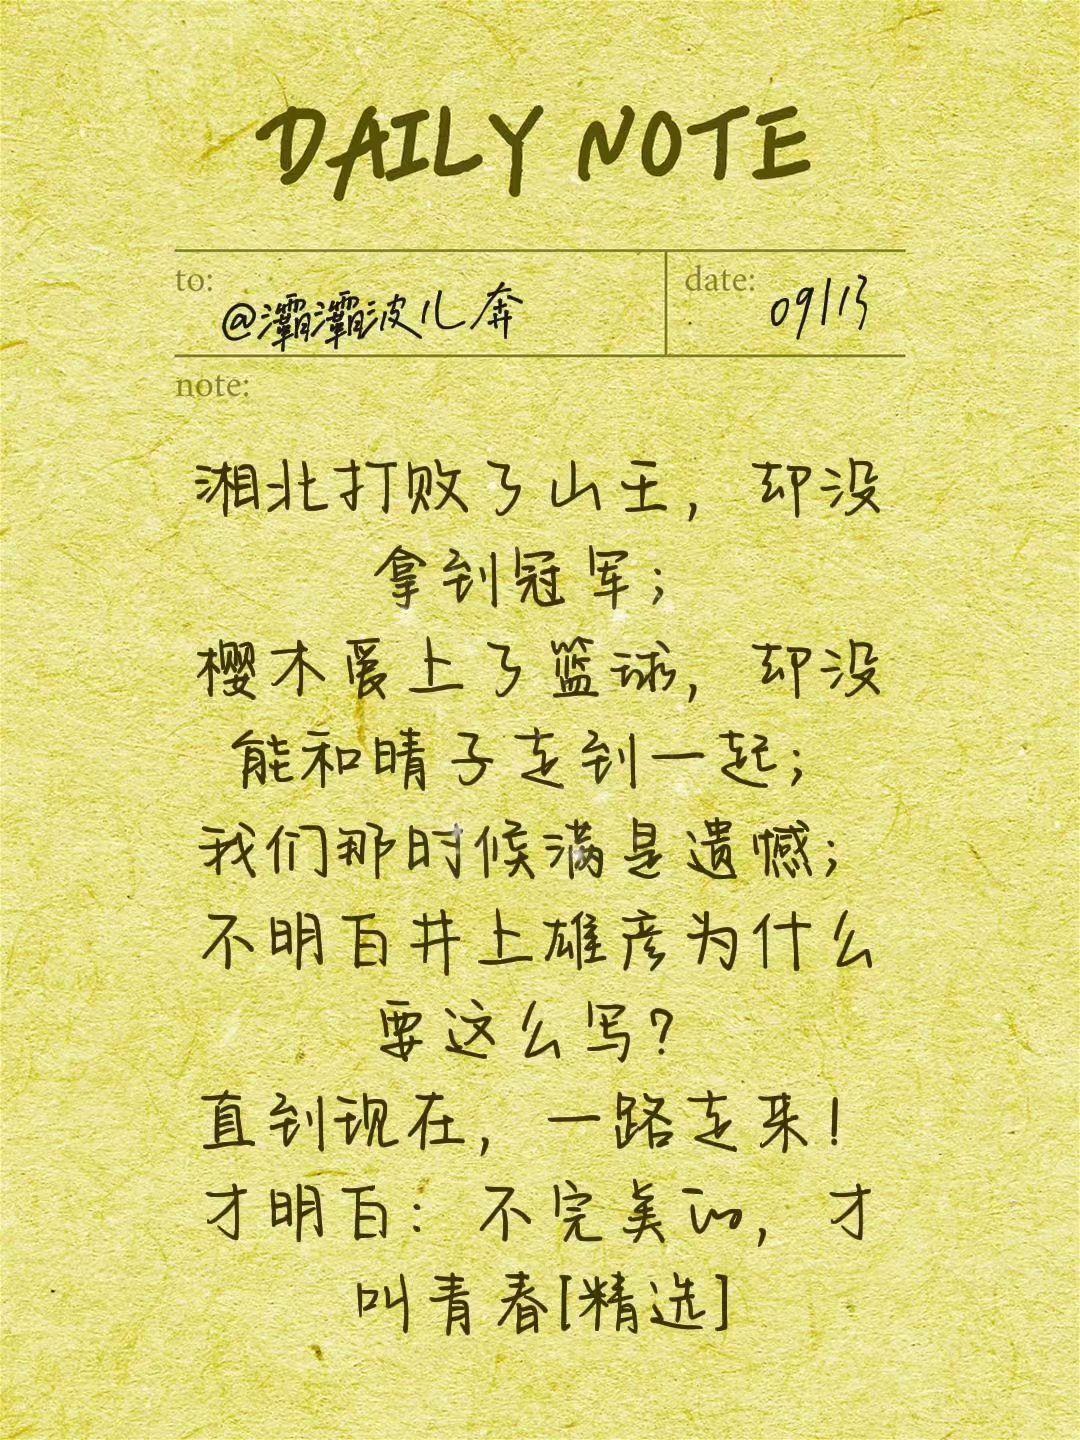 DAILY NOTE
to:
@灞灞波儿奔
date:
09/13
note:
湘北打败了山王，却没
拿到冠军；
樱木爱上了篮球，却没
能和晴子走到一起；
我们那时候满是遗憾；
不明白井上雄彦为什么
要这么写？
直到现在，一路走来！
才明白：不完美的，才
叫青春[精选]